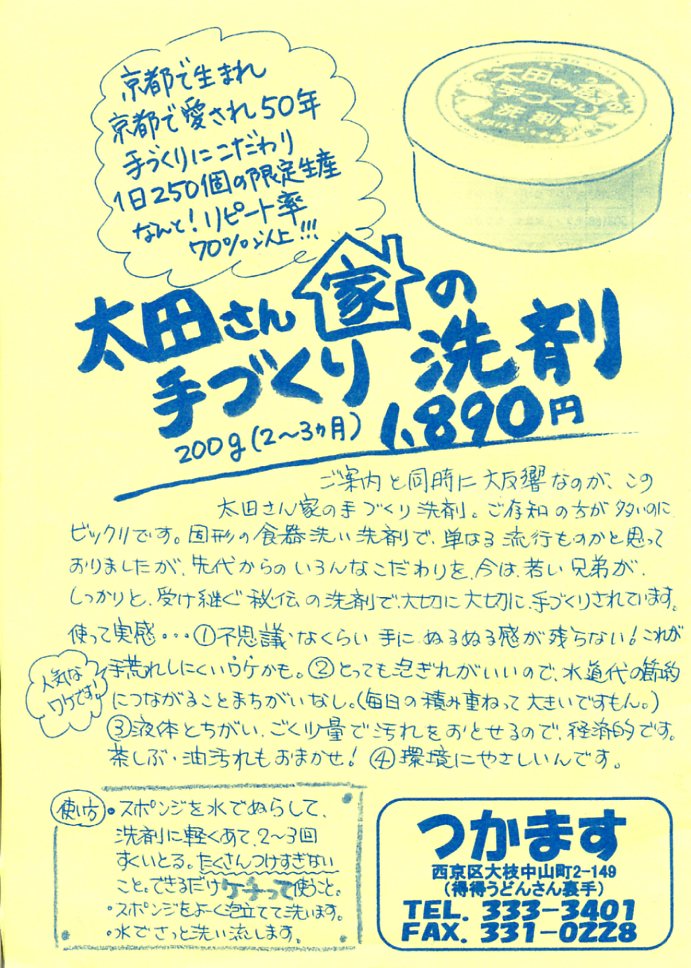 京都で生まれ
京都で愛され50年
手づくりにこだわり
1日250個の限定生産
なんと!リピート率
70%以上!!!
太田さん家の
手づくり
洗剤
太田さん家の
手づくり 洗剤
200g(2～3ヵ月) 1,890円
ご案内と同時に大反響なのが、この
太田さん家の手づくり洗剤。ご存知の方が多いのに
ビックリです。固形の食器洗い洗剤で、単なる流行ものかと思って
おりましたが、先代からのいろんなこだわりを、今は、若い兄弟が、
しっかりと、受け継ぐ秘伝の洗剤で、大切に大切に、手づくりされています。
使って実感・・・①不思議なくらい手にぬるぬる感が残らない!これが
人気な
ワケです!
手荒れしにくいワケかも。②とっても泡ぎれがいいので、水道代の節約
につながることまちがいなし。(毎日の積み重ねって大きいですもん。)
③液体とちがい、ごく少量で汚れをおとせるので、経済的です。
茶しぶ・油汚れもおまかせ! ④環境にやさしいんです。
使い方
・スポンジを水でぬらして、
洗剤に軽くあて、2～3回
すくいとる。たくさんつけすぎない
こと。できるだけケチって使うこと。
・スポンジをよーく泡立てて洗います。
・水でさっと洗い流します。
つかます
西京区大枝中山町2-149
(得得うどんさん裏手)
TEL. 333-3401
FAX. 331-0228